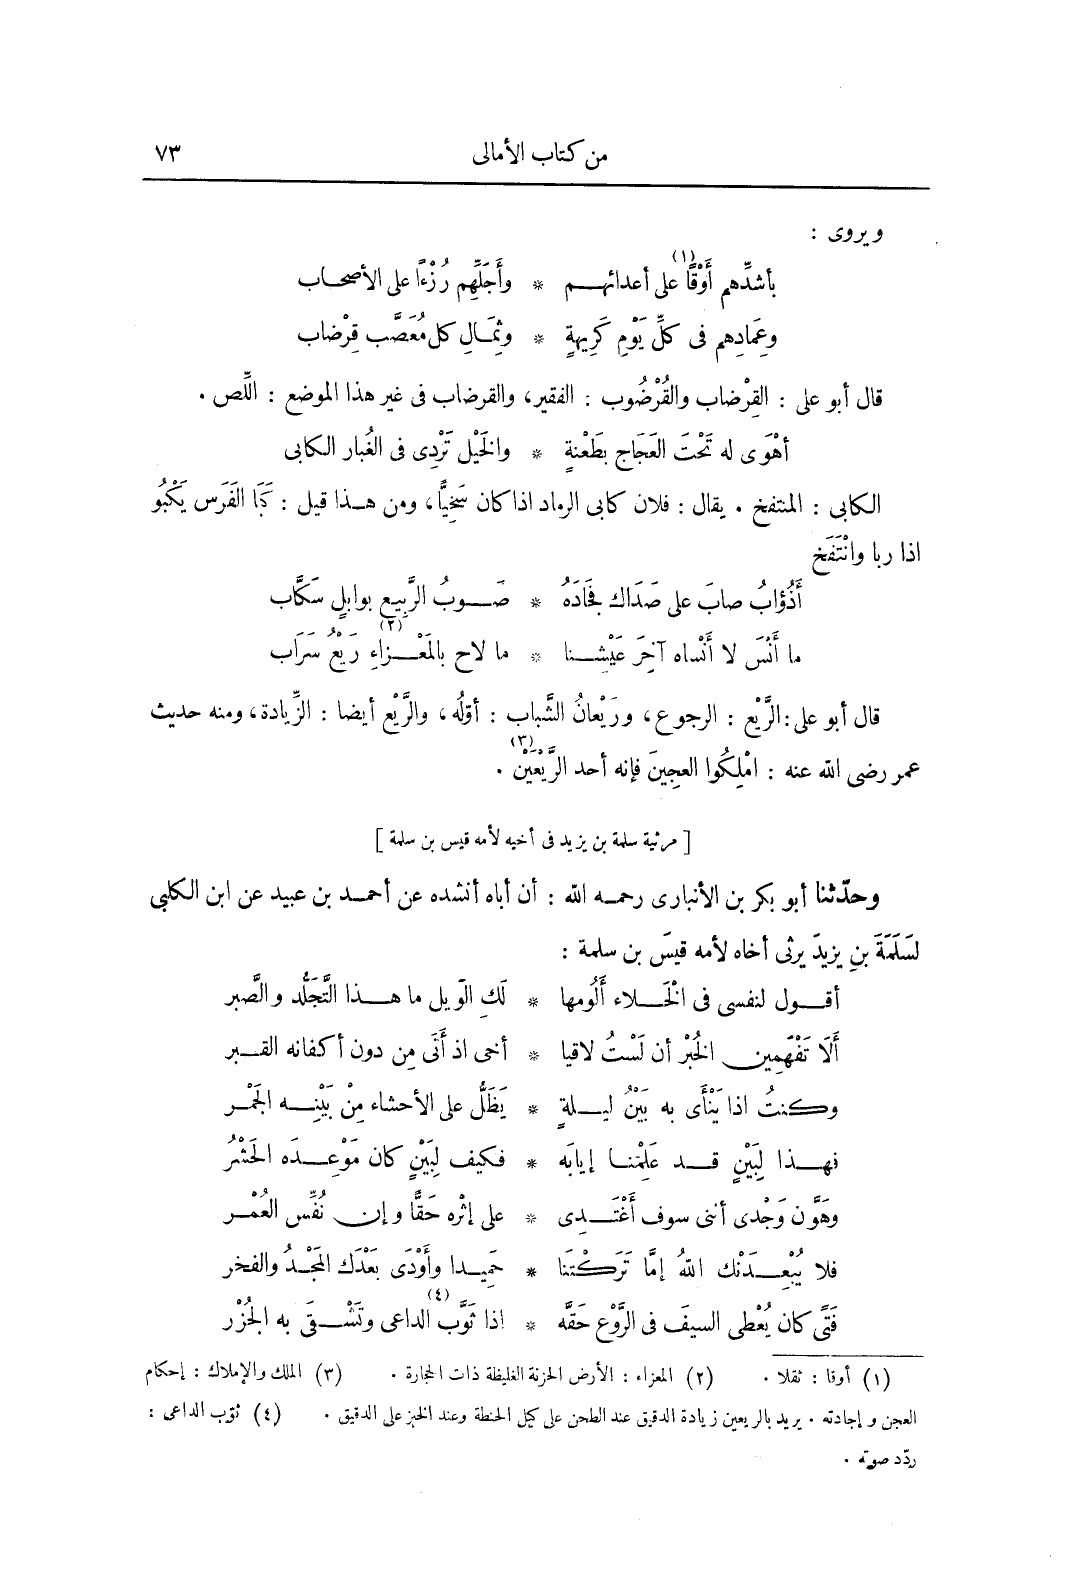 من كتاب الأمالى ٧٣
ويروى :
بأشدِّهم أَوْقًا (١) على أعدائهـــم * وأَجَلِّهِم رُزْءًا على الأصحـاب
وعِمَادِهم فى كلِّ يَوْمِ كَرِيهةٍ * وثِمَـالِ كل مُعَصَّب قِرْضاب
قال أبو على : القِرْضاب والقُرْضُوب : الفقير، والقرضاب فى غير هذا الموضع : اللِّص .
أهْوَى له تَحْتَ العَجَاج بطَعْنةٍ * والخَيْل تَرْدِى فى الغُبار الكابى
الكابى : المنتفخ . يقال : فلان كابى الرماد اذا كان سَخِيًّا، ومن هـذا قيل : كَبَا الفَرَس يَكْبُو
اذا ربا وانْتَفَخ
أَذُؤابُ صابَ على صَدَاك فجَادَهُ * صَـــوبُ الرَّبِيع بوابلٍ سَكَّاب
ما أَنْسَ لا أَنْساه آخِرَ عَيْشِـــنا * ما لاح بالمَعْـــزاءِ (٢) رَيْعُ سَرَاب
قال أبو على : الرَّيْع : الرجوع، ورَيْعانُ الشَّباب : أوّلُه، والرَّيْع أيضا : الزِّيادة، ومنه حديث
عمر رضى الله عنه : امْلِكُوا العجِينَ فإنه أحد الرَّيْعَيْن (٣) .
[ مرثية سلمة بن يزيد فى أخيه لأمه قيس بن سلمة ]
وحدّثنا أبو بكر بن الأنبارى رحمـه الله : أن أباه أنشده عن أحمـد بن عبيد عن ابن الكلبى
لسَلَمَةَ بنِ يزيدَ يرثى أخاه لأمه قيسَ بن سلمة :
أقـــول لنفسى فى الخَـــلاء أَلُومها * لَكِ الوَيل ما هـــذا التَّجَلُّد والصَّبر
أَلَا تَفْهَمِيـن الخُبْر أن لَسْتُ لاقيا * أخى اذ أَتَى مِن دون أكفانه القــبر
وكنتُ اذا يَنْأَى به بَيْنُ ليـــلةٍ * يَظَلُّ على الأحشاء مِنْ بَيْنِـــه الجَمْــر
فهـــذا لِبَيْنٍ قـــد عَلِمْنـا إيابَه * فكيف لبَيْنٍ كان مَوْعِـــدَه الحَشْرُ
وهَوَّن وَجْدى أننى سوف أَغْتَـــدِى * على إثْره حَقًّا وإن نُفِّس العُمْــر
فلا يُبْعِـــدَنْك اللهُ إمَّا تَرَكْتَنا * حَمِيــدا وأَوْدَى بَعْدَك المَجْدُ والفخر
فَتًى كان يُعْطِى السيفَ فى الرَّوْع حَقَّه * اذا ثَوَّب (٤) الداعى وتَشْـــقَى به الجُزْر
(١) أوقا : ثقلا . (٢) المعزاء : الأرض الحزنة الغليظة ذات الحجارة . (٣) الملك والإملاك : إحكام
العجن وإجادته . يريد بالريعين زيادة الدقيق عند الطحن على كيل الحنطة وعند الخبز على الدقيق . (٤) ثوّب الداعى :
ردّد صوته .